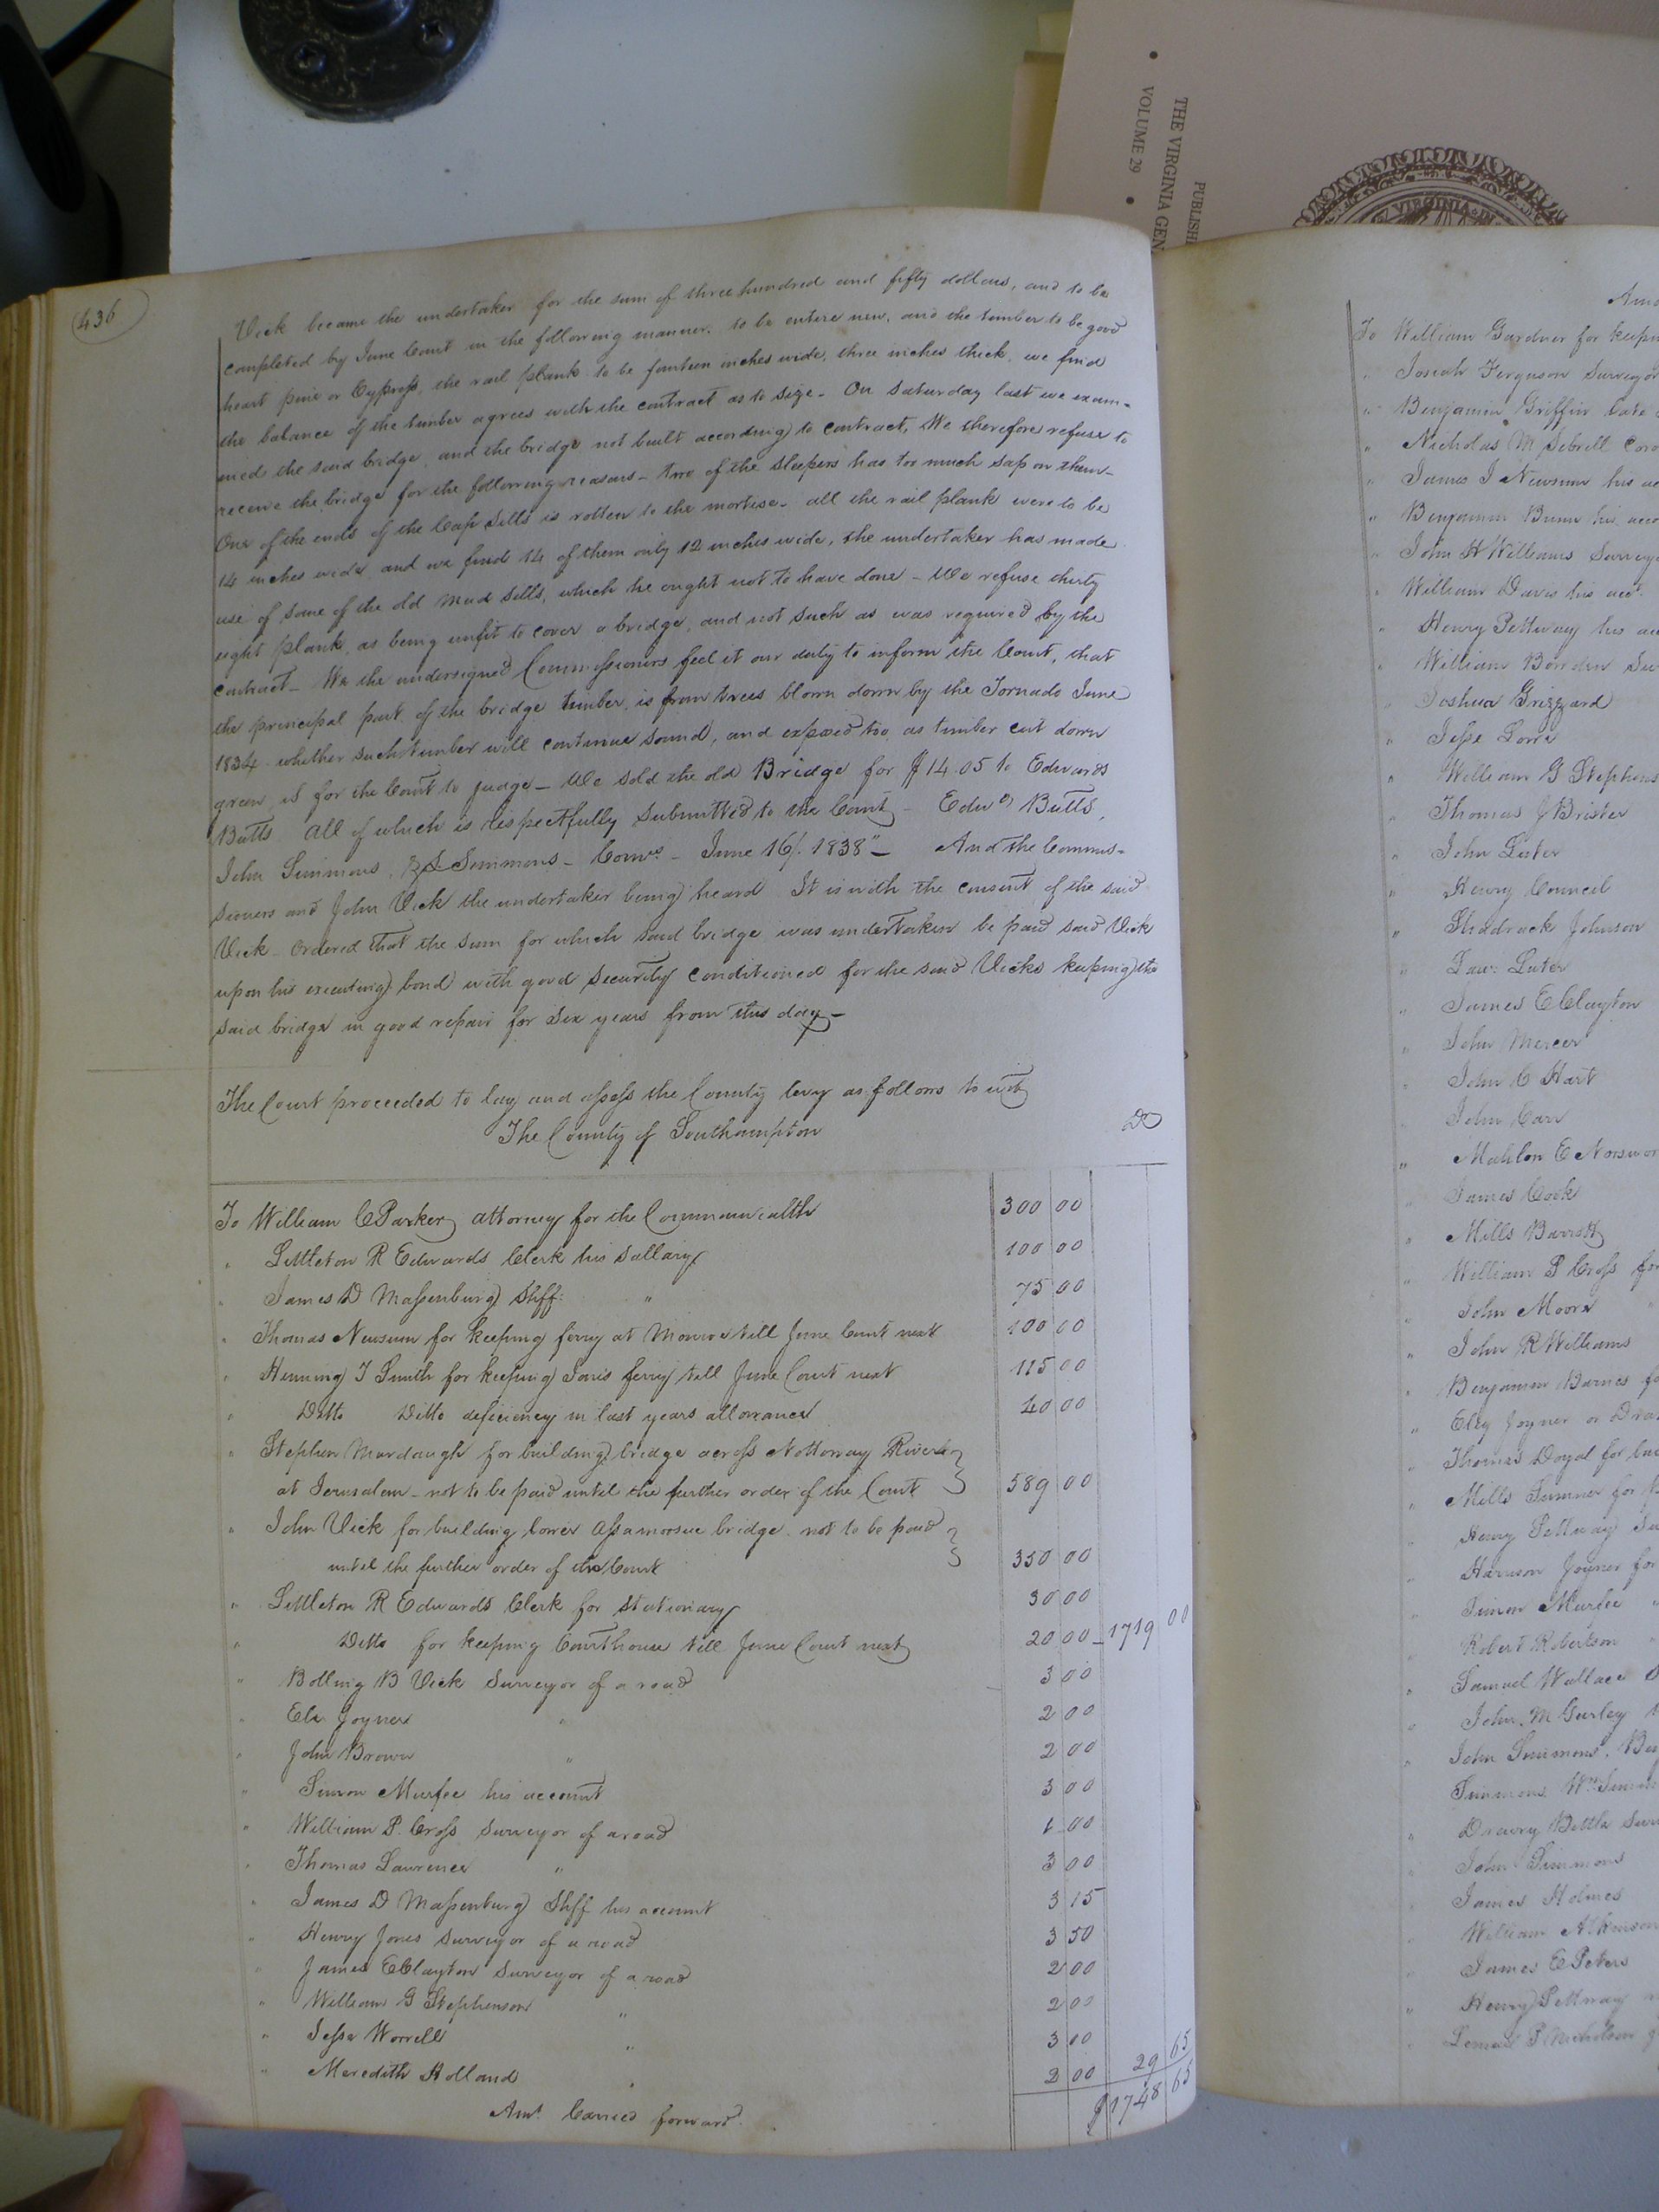 THE VIRGINIA GEN
VOLUME 29
PUBLISH
VIRGINIA
436
Vick became the undertaker for the sum of three hundred and fifty dollars, and to be
completed by June Court in the following manner. to be entire new, and the timber to be good
heart pine or Cypress, the rail plank to be fourteen inches wide, three inches thick, we find
the balance of the timber agrees with the contract as to size - On Saturday last we exam-
ined the said bridge, and the bridge not built according to contract, We therefore refuse to
receive the bridge for the following reasons - two of the sleepers has too much sap on them -
One of the ends of the Cap Sills is rotten to the mortise - all the rail plank were to be
14 inches wide, and we find 14 of them only 12 inches wide, the undertaker has made
use of some of the old mud sills, which he ought not to have done - We refuse thirty
eight plank, as being unfit to cover a bridge, and not such as was required by the
contract - We the undersigned Commissioners feel it our duty to inform the Court, that
the principal part of the bridge timber, is from trees blown down by the Tornado June
1834 whether such timber will continue sound, and exposed too, as timber cut down
green, is for the Court to judge - We sold the old Bridge for $14.05 to Edwards
Butts All of which is respectfully submitted to the Court - Edwd Butts,
John Simmons, Simmons - Comrs - June 16/. 1838" - And the Commis-
sioners and John Vick the undertaker being heard It is with the consent of the said
Vick - Ordered that the sum for which said bridge was undertaken be paid said Vick
upon his executing bond with good security conditioned for the said Vicks keeping the
said bridge in good repair for six years from this day -
The Court proceeded to lay and assess the County levy as follows to wit
The County of Southampton Dr
To William C Parker attorney for the Commonwealth 300 00
" Littleton R Edwards Clerk his Sallary 100 00
" James D Massenburg Shff: " 75 00
" Thomas Newsum for keeping ferry at Monroe till June Court next 100 00
" Henning T Smith for keeping ferry till June Court next 115 00
" Ditto Ditto deficiency in last years allowance 40 00
" Stephen Murdaugh for building bridge across Nottoway River
at Jerusalem - not to be paid until the further order of the Court 589 00
" John Vick for building lower Assamoosuc bridge. not to be paid
until the further order of the Court 350 00
" Littleton R Edwards Clerk for Stationary 30 00
" Ditto for keeping Courthouse till June Court next 20 00 - 1719 00
" Bolling B Vick Surveyor of a road 3 00
" Eli Joyner " 2 00
" John Brown " 2 00
" Simon Murfee his account 3 00
" William P. Cross Surveyor of a road 1 00
" Thomas Lawrence " 3 00
" James D Massenburg Shff his account 3 15
" Henry Jones Surveyor of a road 3 50
" James E Clayton Surveyor of a road 2 00
" William G Stephenson " 2 00
" Jesse Worrell " 3 00
" Meredith Holland " 2 00 29 65
Amt. Carried forward. $1748 65
Amo
To William Gardner for keepin
" Josiah Ferguson Surveyor
" Benjamin Griffin late
" Nicholas M Sebrell Coro
" James J Newsum his ac
" Benjamin Bunn his acco
" John H Williams Survey
" William Davis his acct.
" Henry Pettway his ac
" William Bowden Sur
" Joshua Grizzard
" Jesse Lorre
" William G Stephens
" Thomas J Brister
" John Luter
" Henry Council
" Shadrack Johnson
" Law: Luter
" James E Clayton
" John Mercer
" John C Hart
" John Carr
" Mahlon E Norswor
" James Cook
" Mills Barrott
" William P Cross for
" John Moore
" John R Williams
" Benjamin Barnes fo
" Eley Joyner or Dra
" Thomas Doyal for bu
" Mills Sumner for
" Henry Pettway Su
" Harrison Joyner for
" Simon Murfee "
" Robert Robertson
" Samuel Wallace
" John M Gurley
" John Simmons, Be
Simmons, Wm Simm
" Drewry Bittle Sur
" John Simmons
" James Holmes
" William Atkinson
" James E Peters
" Henry Pettway
" Lemuel P Nicholson